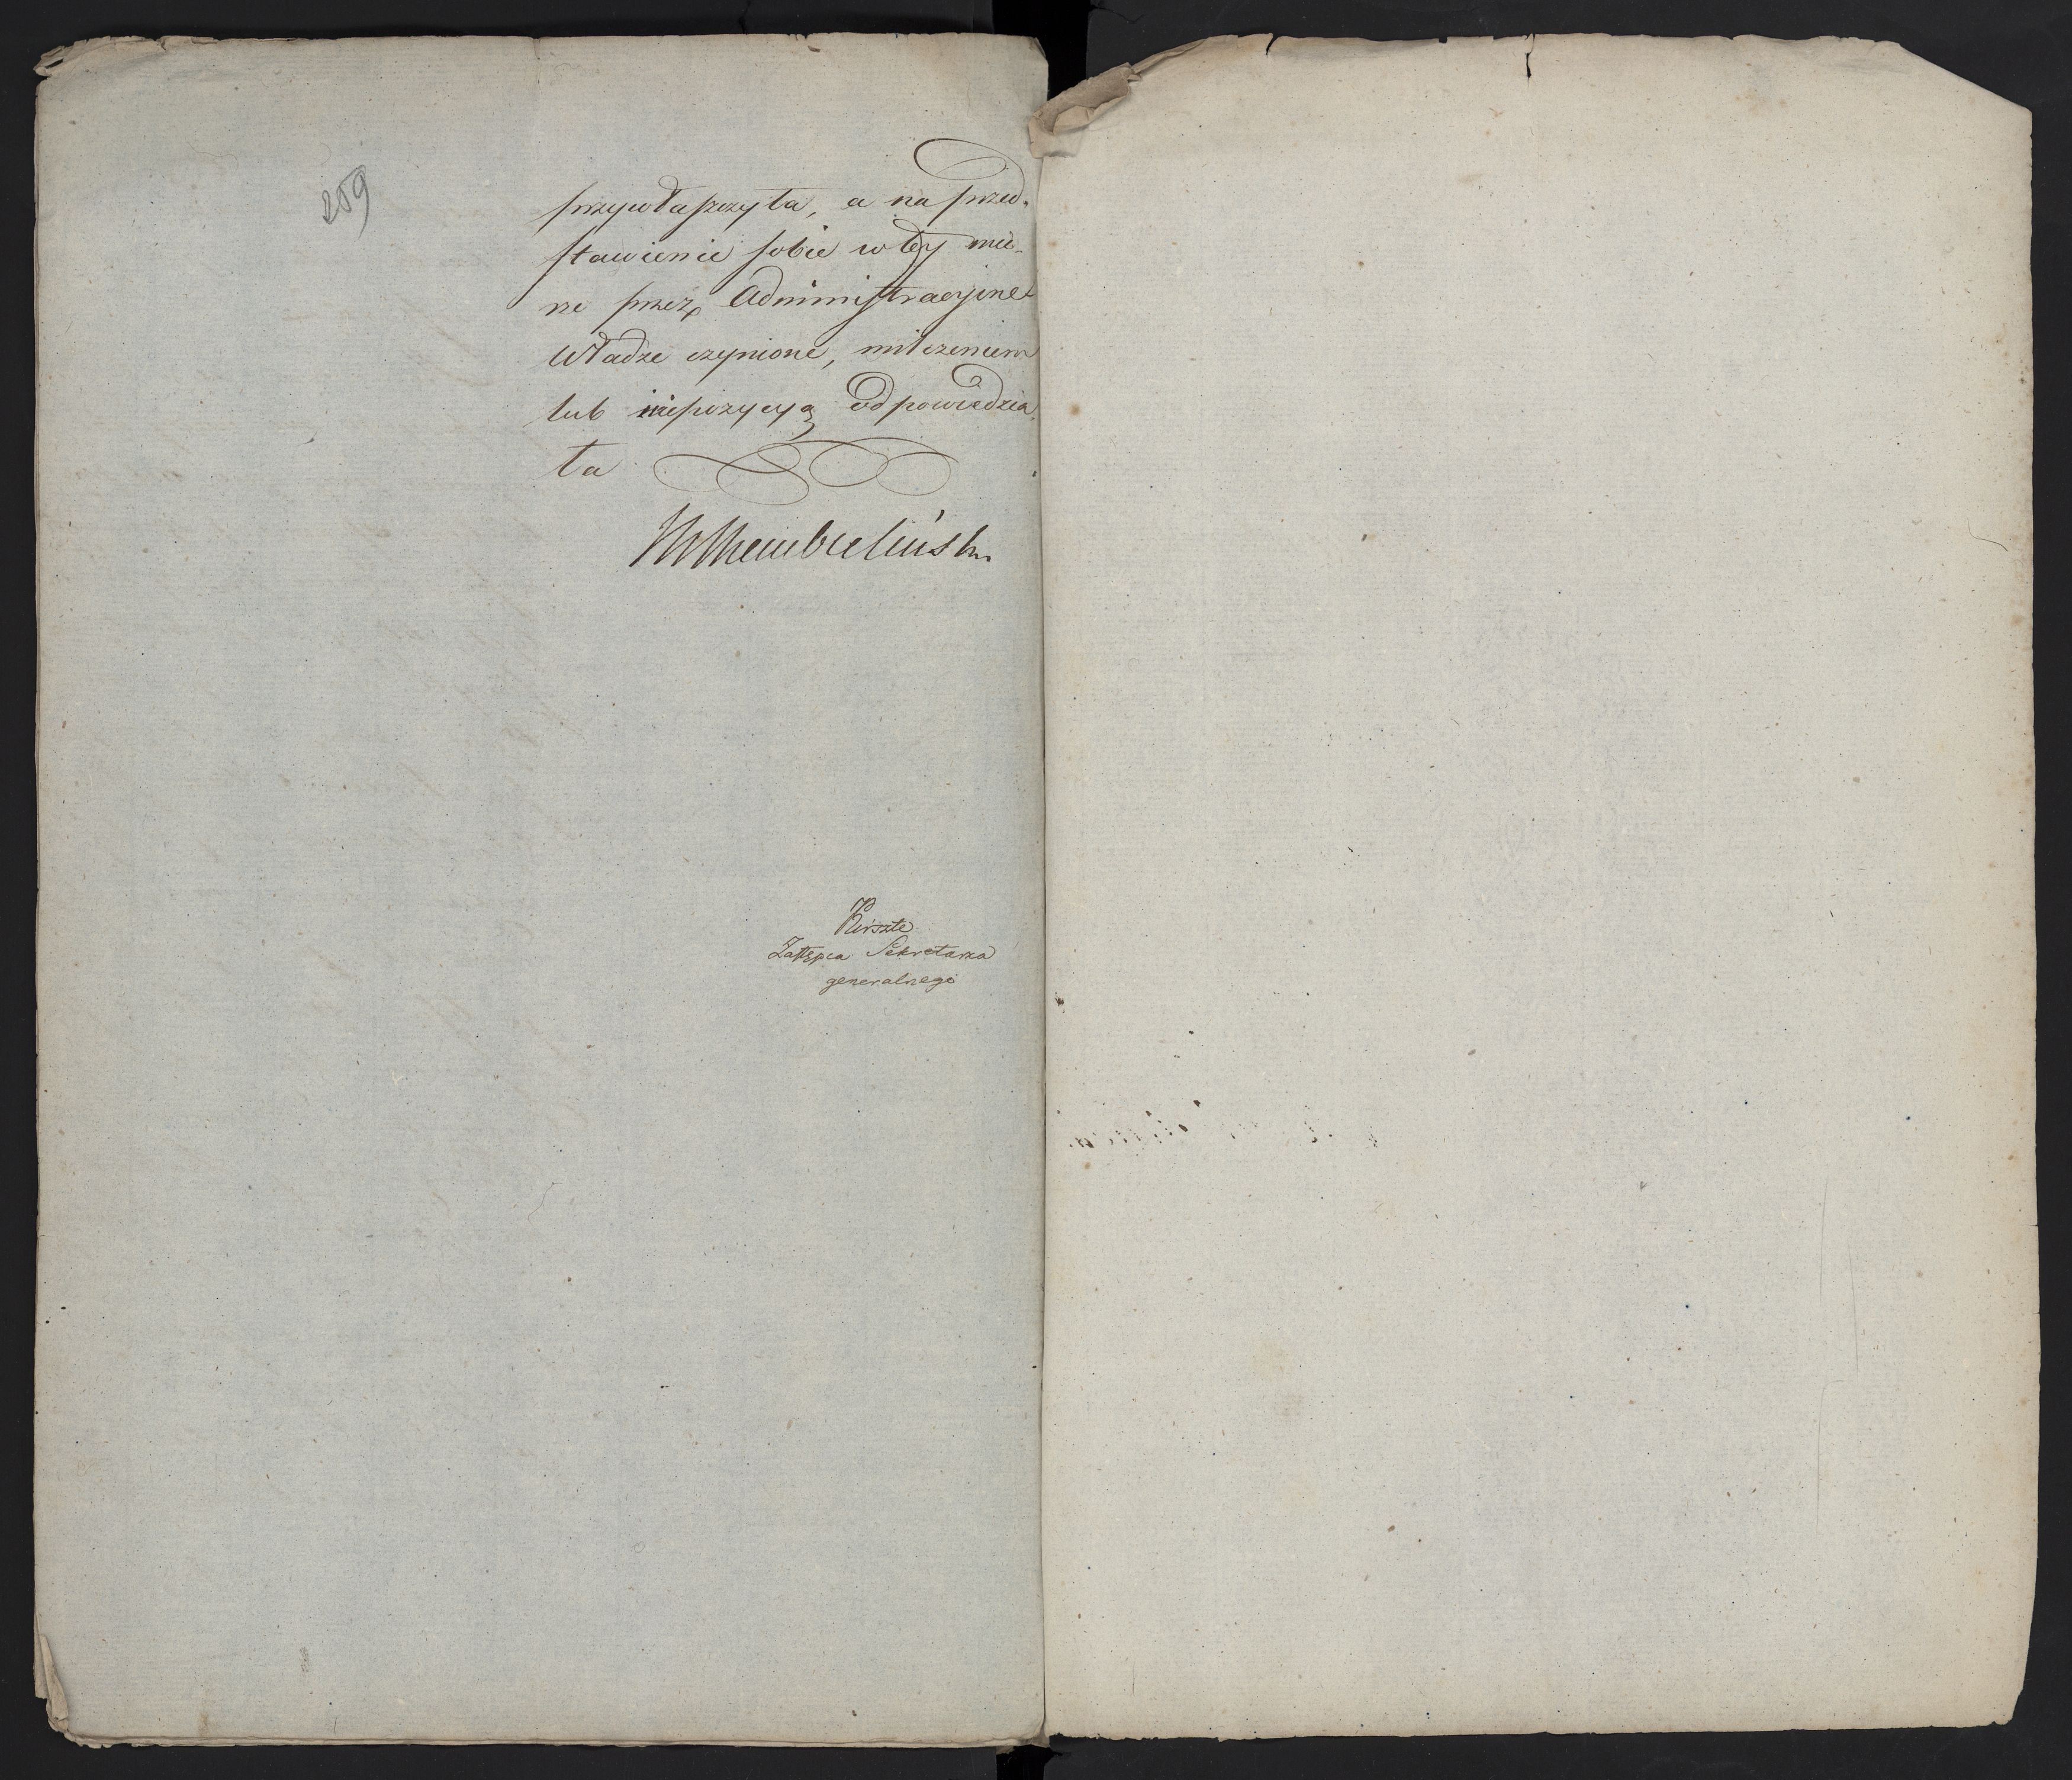 259
przywłaszczyła, a na przed-
stawienie sobie w tej mie-
rze przez Administracyjne
Władze czynione, milczeniem
lub odpowiedzia
ła
Rembieliński
Kirszte
Zastępca Sekretarza
generalnego